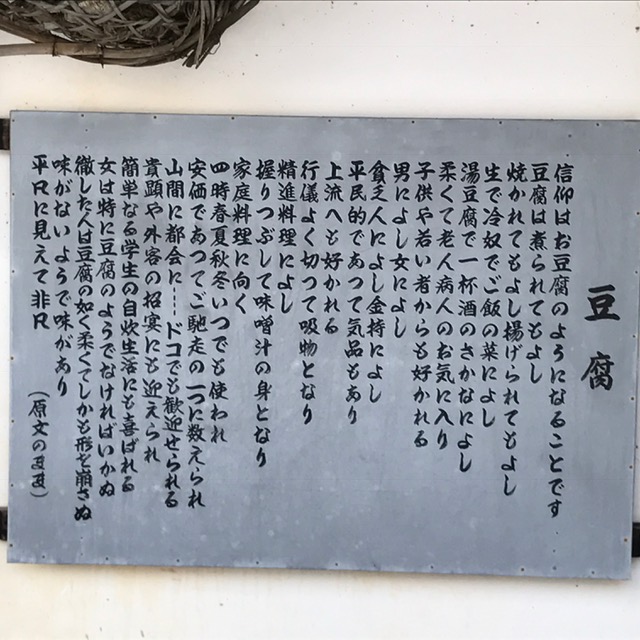 豆腐
信仰はお豆腐のようになることです
豆腐は煮られてもよし
焼かれてもよし揚げられてもよし
生で冷奴でご飯の菜によし
湯豆腐で一杯酒のさかなによし
柔くて老人病人のお気に入り
子供や若い者からも好かれる
男によし女によし
貧乏人によし金持によし
平民的であつて気品もあり
上流へも好かれる
行儀よく切つて吸物となり
精進料理によし
握りつぶして味噌汁の身となり
家庭料理に向く
四時春夏秋冬いつでも使われ
安価であつてご馳走の一つに数えられ
山間に都会に---ドコでも歓迎せられる
貴顕や外客の招宴にも迎えられ
簡単なる学生の自炊生活にも喜ばれる
女は特に豆腐のようでなければいかぬ
徹した人は豆腐の如く柔くてしかも形を崩さぬ
味がないようで味があり
平凡に見えて非凡
(原文のまま)